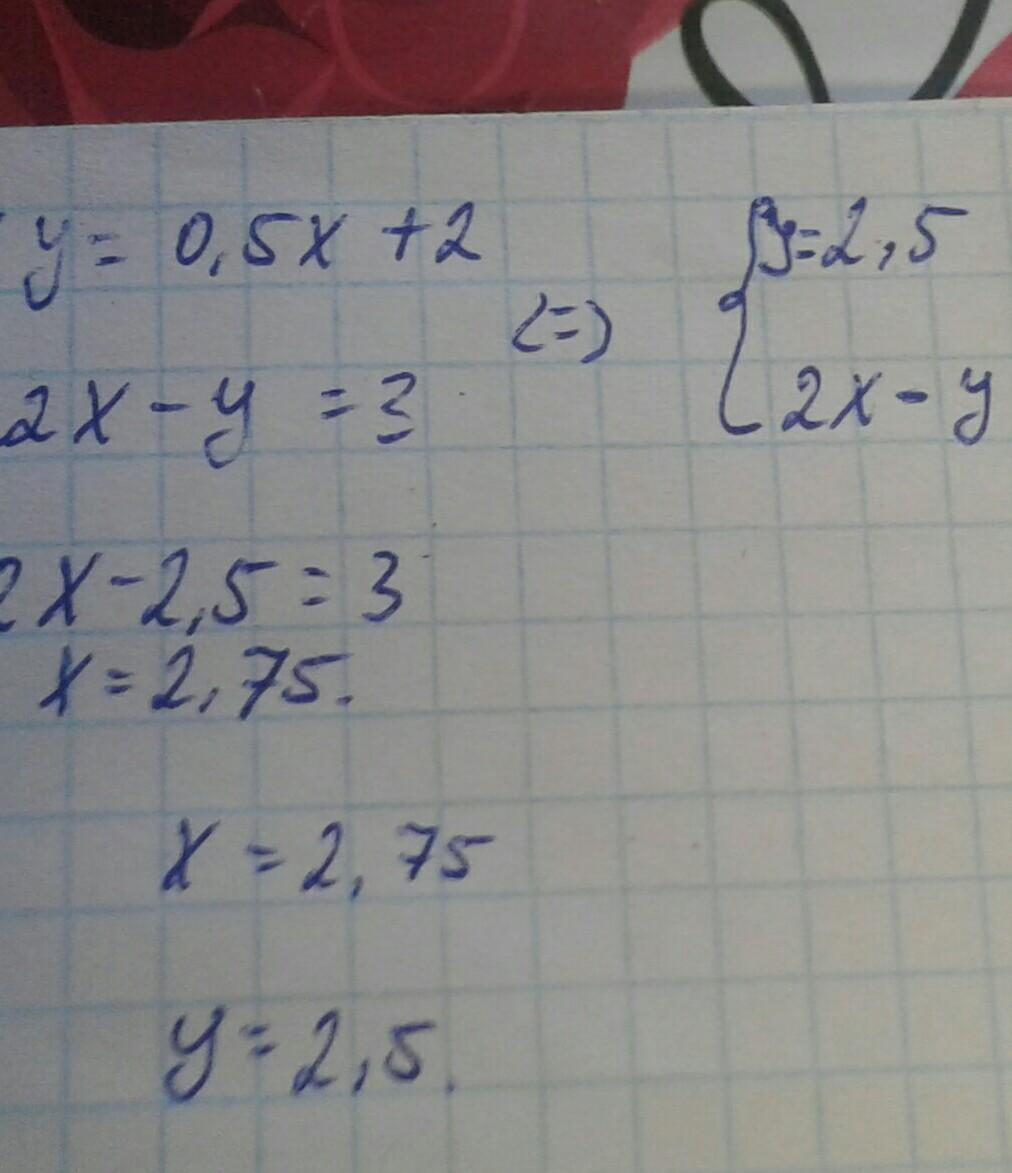 y = 0,5x + 2
<=> { y = 2,5
2x - y = 3
2x - y
2x - 2,5 = 3
x = 2,75.
x = 2,75
y = 2,5.